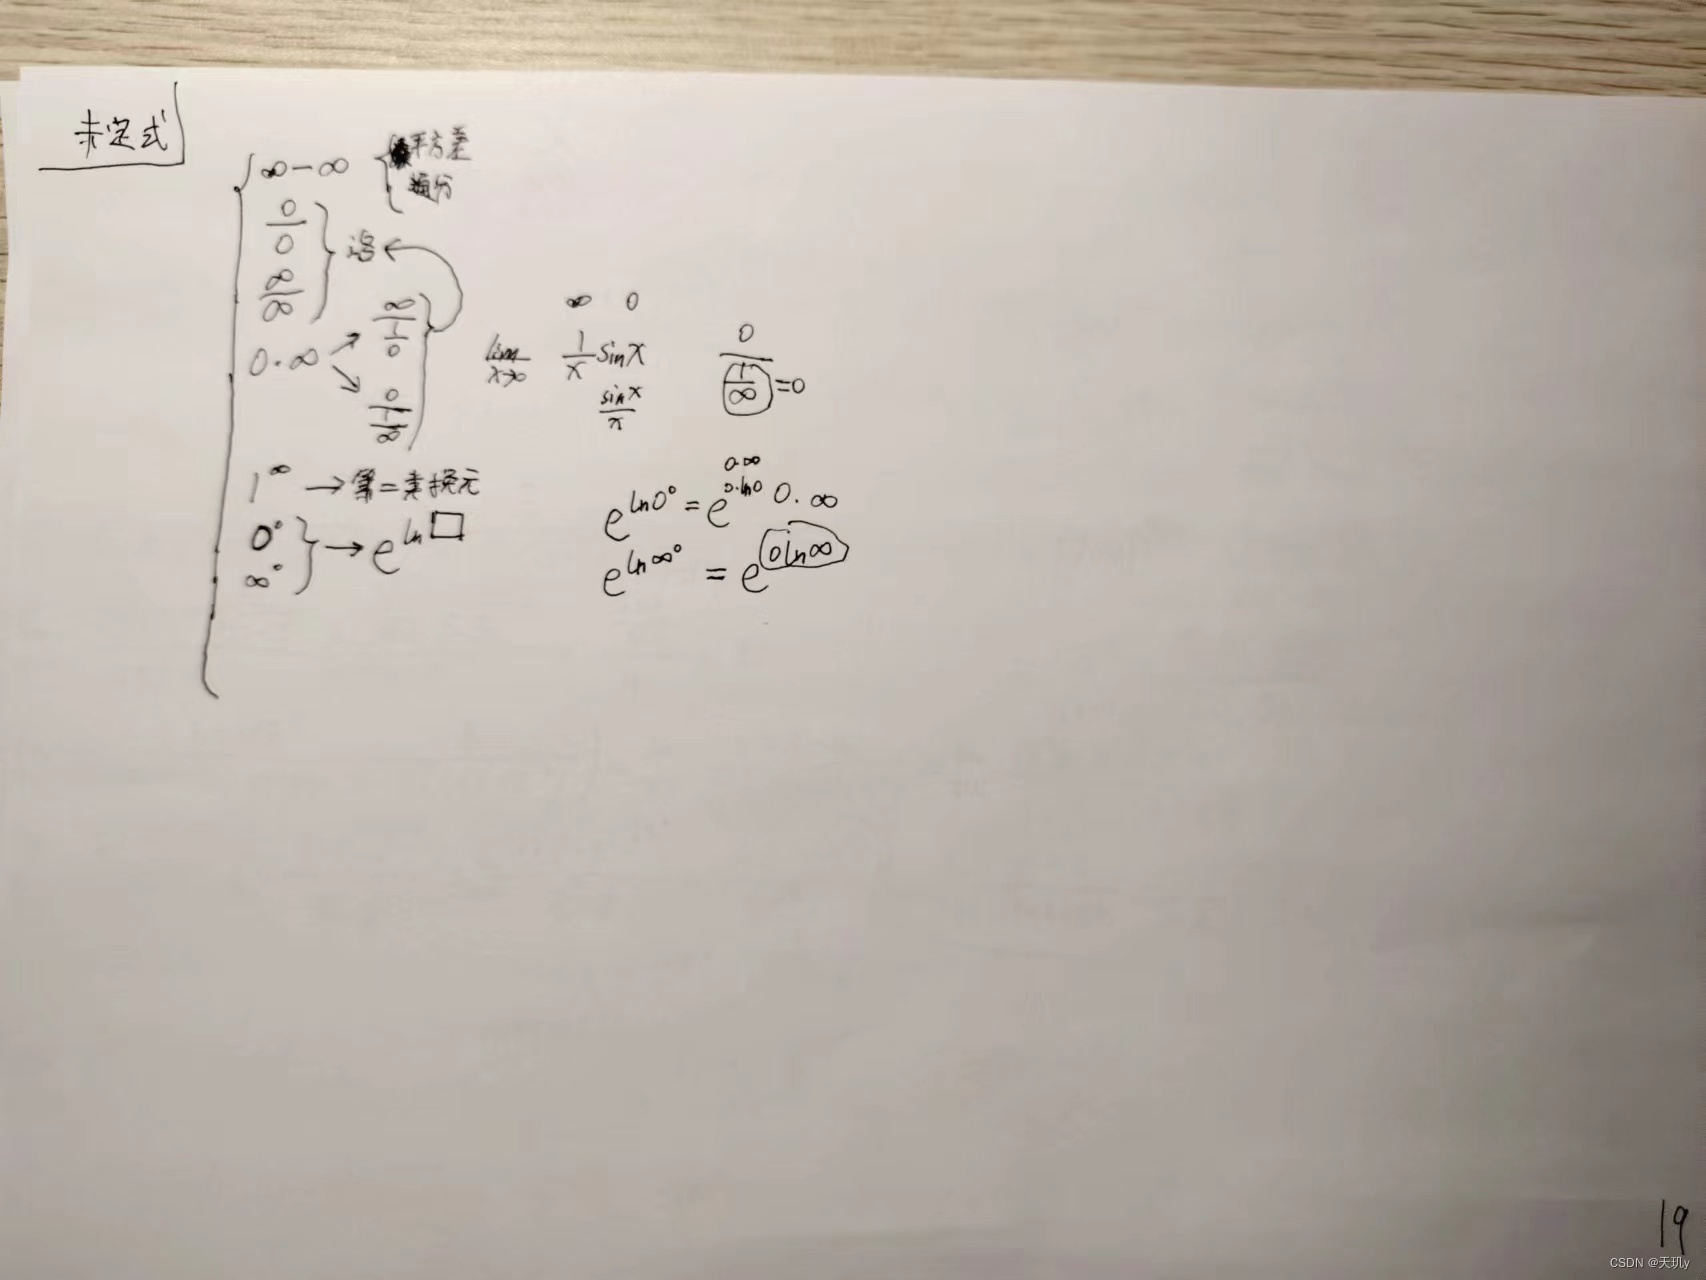 未定式
∞-∞ { 平方差
通分
0/0
∞/∞ } 洛 ←
0·∞ ↗ ∞/(1/0)
↘ 0/(1/∞) }
lim x→0 1/x sinx
∞ 0
sinx/x
0/(1/∞) =0
1^∞ → 第二类换元
0^0
∞^0 } → e^ln□
e^ln0^0 = e^0·ln0 0·∞
0·∞
e^ln∞^0 = e^0ln∞
19
CSDN @天玑y